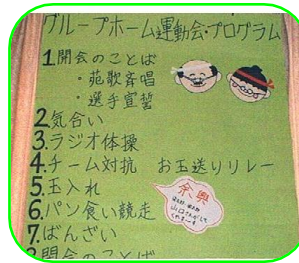 グループホーム運動会・プログラム
1開会のことば
・苑歌斉唱
・選手宣誓
2.気合い
3.ラジオ体操
4.チーム対抗 お玉送りリレー
5.玉入れ
余興
6.パン食い競走
7.ばんざい
閉会のことば